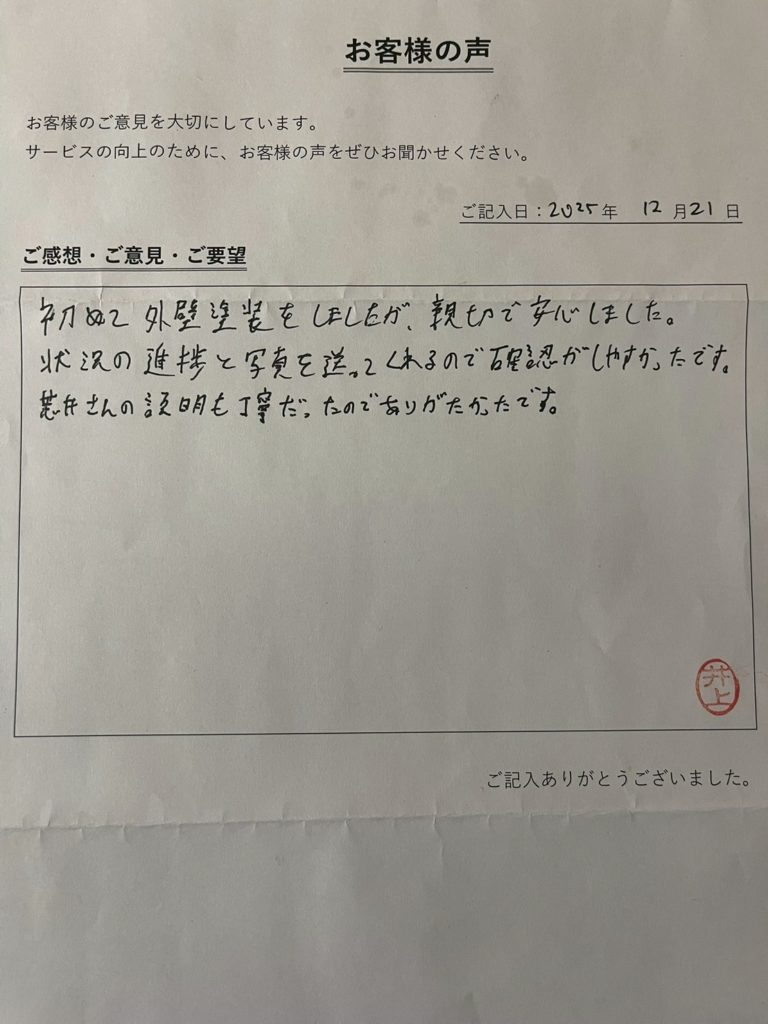 お客様の声
お客様のご意見を大切にしています。
サービスの向上のために、お客様の声をぜひお聞かせください。
ご記入日：2025年 12月21日
ご感想・ご意見・ご要望
初めて外壁塗装をしましたが、親切で安心しました。
状況の進捗と写真を送ってくれるので確認がしやすかったです。
荒井さんの説明も丁寧だったのでありがたかったです。
井上
ご記入ありがとうございました。